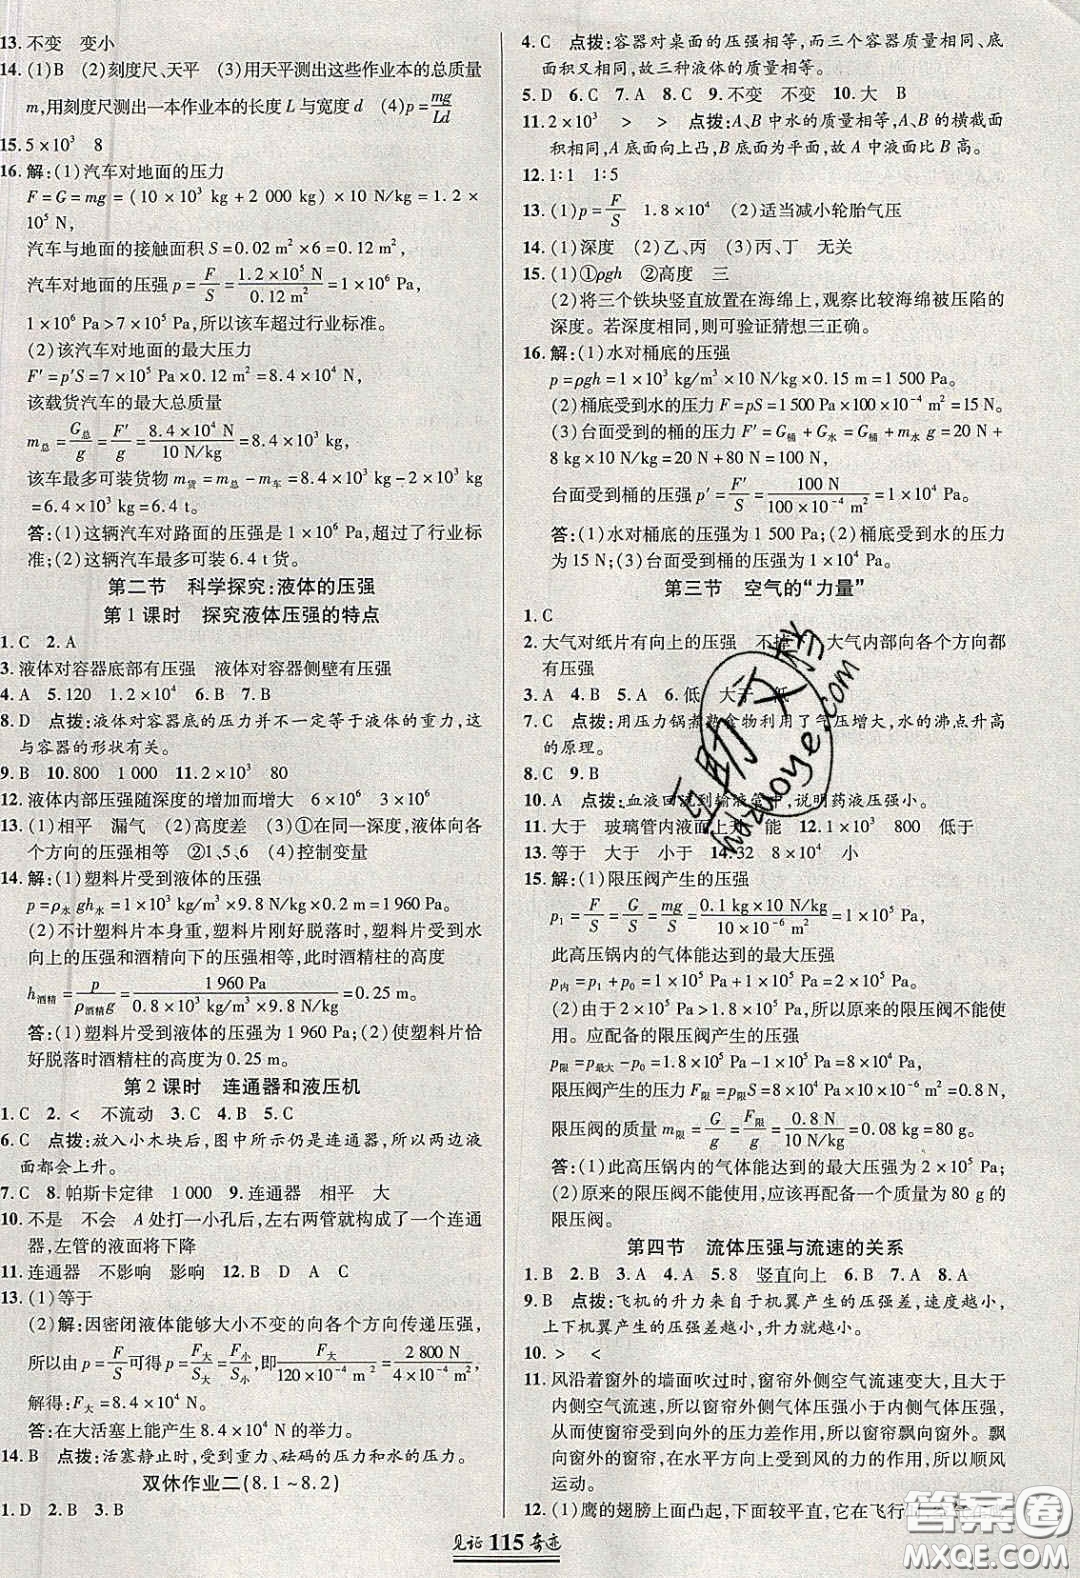 13. 不变　变小
14. (1)B　(2)刻度尺、天平　(3)用天平测出这些作业本的总质量
m,用刻度尺测出一本作业本的长度 L 与宽度 d　(4)p=mg/Ld
15. 5×10³　8
16. 解:(1)汽车对地面的压力
F=G=mg=(10×10³ kg+2 000 kg)×10 N/kg=1.2×
10⁵ N,
汽车与地面的接触面积 S=0.02 m²×6=0.12 m²,
汽车对地面的压强 p=F/S=1.2×10⁵ N/0.12 m²=1×10⁶ Pa,
1×10⁶ Pa>7×10⁵ Pa,所以该车超过行业标准。
(2)该汽车对地面的最大压力
F′=p′S=7×10⁵ Pa×0.12 m²=8.4×10⁴ N,
该载货汽车的最大总质量
m总=G总/g=F′/g=8.4×10⁴ N/10 N/kg=8.4×10³ kg,
该车最多可装货物 m货=m总-m车=8.4×10³ kg-2×10³ kg
=6.4×10³ kg=6.4 t。
答:(1)这辆汽车对路面的压强是 1×10⁶ Pa,超过了行业标
准;(2)这辆汽车最多可装 6.4 t 货。
第二节　科学探究:液体的压强
第 1 课时　探究液体压强的特点
1. C　2. A
3. 液体对容器底部有压强　液体对容器侧壁有压强
4. A　5. 120　1.2×10⁴　6. B　7. B
8. D　点拨:液体对容器底的压力并不一定等于液体的重力,这
与容器的形状有关。
9. B　10. 800　1 000　11. 2×10³　80
12. 液体内部压强随深度的增加而增大　6×10⁶　3×10⁶
13. (1)相平　漏气　(2)高度差　(3)①在同一深度,液体向各
个方向的压强相等　②1、5、6　(4)控制变量
14. 解:(1)塑料片受到液体的压强
p=ρ水 gh水=1×10³ kg/m³×9.8 N/kg×0.2 m=1 960 Pa。
(2)不计塑料片本身重,塑料片刚好脱落时,塑料片受到水
向上的压强和酒精向下的压强相等,此时酒精柱的高度
h酒精=p/ρ酒精g=1 960 Pa/0.8×10³ kg/m³×9.8 N/kg=0.25 m。
答:(1)塑料片受到液体的压强为 1 960 Pa;(2)使塑料片恰
好脱落时酒精柱的高度为 0.25 m。
第 2 课时　连通器和液压机
1. C　2. <　不流动　3. C　4. B　5. C
6. C　点拨:放入小木块后,图中所示仍是连通器,所以两边液
面都会上升。
7. C　8. 帕斯卡定律　1 000　9. 连通器　相平　大
10. 不是　不会　A 处打一小孔后,左右两管就构成了一个连通
器,左管的液面将下降
11. 连通器　不影响　影响　12. B　D　A　C
13. (1)等于
(2)解:因密闭液体能够大小不变的向各个方向传递压强,
所以由 p=F/S 可得 p=F大/S大=F小/S小,即F大/120×10⁻⁴ m²=2 800 N/4×10⁻⁴ m²,
解得:F大=8.4×10⁴ N。
答:在大活塞上能产生 8.4×10⁴ N 的举力。
14. B　点拨:活塞静止时,受到重力、砝码的压力和水的压力。
双休作业二(8.1~8.2)
1. D　2. B　3. B
4. C　点拨:容器对桌面的压强相等,而三个容器质量相同、底
面积又相同,故三种液体的质量相等。
5. D　6. C　7. A　8. C　9. 不变　不变　10. 大　B
11. 2×10³　>　>　点拨:A、B 中水的质量相等,A、B 的横截面
积相同,A 底面向上凸,B 底面为平面,故 A 中液面比 B 高。
12. 1:1　1:5
13. (1)p=F/S　1.8×10⁴　(2)适当减小轮胎气压
14. (1)深度　(2)乙、丙　(3)丙、丁　无关
15. (1)①ρgh　②高度　三
(2)将三个铁块竖直放置在海绵上,观察比较海绵被压陷的
深度。若深度相同,则可验证猜想三正确。
16. 解:(1)水对桶底的压强
p=ρgh=1×10³ kg/m³×10 N/kg×0.15 m=1 500 Pa。
(2)桶底受到水的压力 F=pS=1 500 Pa×100×10⁻⁴ m²=15 N。
(3)台面受到的桶的压力 F′=G桶+G水=G桶+m水 g=20 N+
8 kg×10 N/kg=20 N+80 N=100 N,
台面受到桶的压强 p′=F′/S=100 N/100×10⁻⁴ m²=1×10⁴ Pa。
答:(1)水对桶底的压强为 1 500 Pa;(2)桶底受到水的压力
为 15 N;(3)台面受到桶的压强为 1×10⁴ Pa。
第三节　空气的“力量”
1. C
2. 大气对纸片有向上的压强　不掉　大气内部向各个方向都
有压强
3. A　4. B　5. A　6. 低　大于　低
7. C　点拨:用压力锅煮熟食物利用了气压增大,水的沸点升高
的原理。
8. C　9. B
10. A　点拨:血液回流到输液管中,说明药液压强小。
11. 大于　玻璃管内液面上升　能　12. 1×10⁵　800　低于
13. 等于　大于　小于　14. 32　8×10⁴　小
15. 解:(1)限压阀产生的压强
p₁=F/S=G/S=mg/S=0.1 kg×10 N/kg/10×10⁻⁶ m²=1×10⁵ Pa,
此高压锅内的气体能达到的最大压强
p内=p₁+p₀=1×10⁵ Pa+1×10⁵ Pa=2×10⁵ Pa。
(2)由于 2×10⁵ Pa>1.8×10⁵ Pa,所以原来的限压阀不能使
用。应配备的限压阀产生的压强
p限=p最大-p₀=1.8×10⁵ Pa-1×10⁵ Pa=0.8×10⁵ Pa,
限压阀产生的压力 F限=p限S=0.8×10⁵ Pa×10×10⁻⁶ m²=0.8 N,
限压阀的质量 m限=G/g=F限/g=0.8 N/10 N/kg=0.08 kg=80 g。
答:(1)此高压锅内的气体能达到的最大压强为 2×10⁵ Pa;
(2)原来的限压阀不能使用,应该再配备一个质量为 80 g 的
限压阀。
第四节　流体压强与流速的关系
1. B　2. B　3. A　4. A　5. 8　竖直向上　6. B　7. A　8. A
9. B　点拨:飞机的升力来自于机翼产生的压强差,速度越小,
上下机翼产生的压强差越小,升力就越小。
10. >　<
11. 风沿着窗外的墙面吹过时,窗帘外侧空气流速变大,且大于
内侧空气流速,所以窗帘外侧气体压强小于内侧气体压强,
窗帘受到向外的压力差作用,所以窗帘飘向窗外。飘向窗
外的窗帘,在水平方向上受到风的力的作用,所以顺风
运动。
12. (1)鹰的翅膀上面凸起,下面较平直,它在飞行
见证 115 奇迹
互助文档
huzuoye.com
答案圈
MXQE.COM